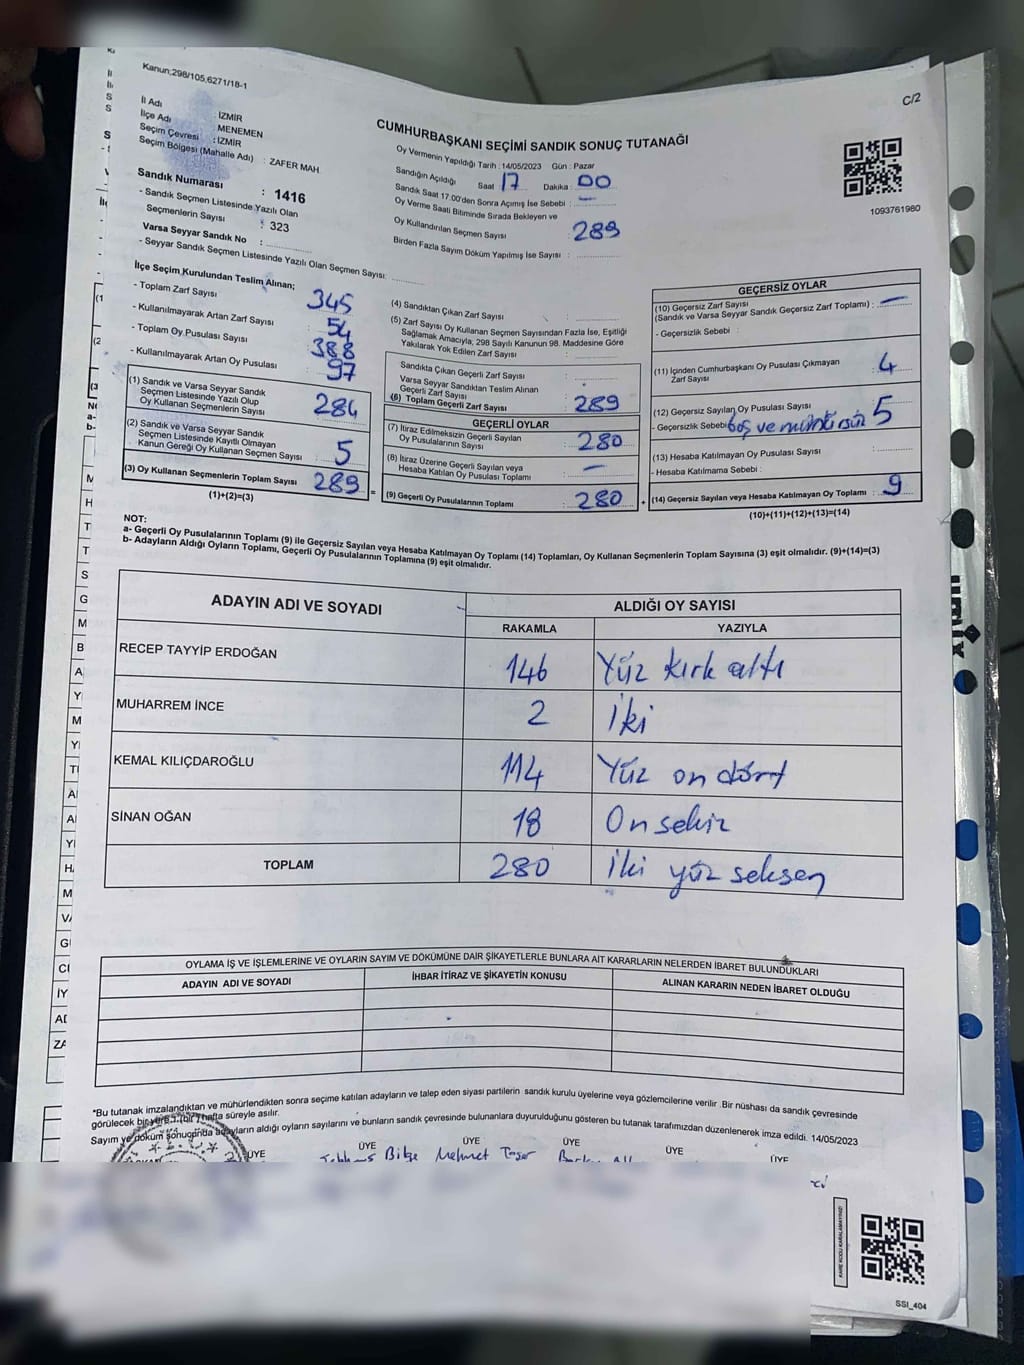 Kanun;298/105,6271/18-1
C/2
İl Adı : İZMİR
İlçe Adı : MENEMEN
Seçim Çevresi : İZMİR
Seçim Bölgesi (Mahalle Adı) : ZAFER MAH
CUMHURBAŞKANI SEÇİMİ SANDIK SONUÇ TUTANAĞI
Oy Vermenin Yapıldığı Tarih : 14/05/2023 Gün : Pazar
Sandığın Açıldığı Saat 17 Dakika : 00
Sandık Saat 17.00'den Sonra Açılmış İse Sebebi : —
Oy Verme Saati Bitiminde Sırada Bekleyen ve
Oy Kullandırılan Seçmen Sayısı : 289
Birden Fazla Sayım Döküm Yapılmış İse Sayısı :
1093761980
Sandık Numarası : 1416
- Sandık Seçmen Listesinde Yazılı Olan
Seçmenlerin Sayısı : 323
Varsa Seyyar Sandık No :
- Seyyar Sandık Seçmen Listesinde Yazılı Olan Seçmen Sayısı:
İlçe Seçim Kurulundan Teslim Alınan;
- Toplam Zarf Sayısı 345
- Kullanılmayarak Artan Zarf Sayısı 54
- Toplam Oy Pusulası Sayısı 388
- Kullanılmayarak Artan Oy Pusulası 97
(1) Sandık ve Varsa Seyyar Sandık
Seçmen Listesinde Yazılı Olup
Oy Kullanan Seçmenlerin Sayısı 284
(2) Sandık ve Varsa Seyyar Sandık
Seçmen Listesinde Kayıtlı Olmayan
Kanun Gereği Oy Kullanan Seçmen Sayısı 5
(3) Oy Kullanan Seçmenlerin Toplam Sayısı 289
(1)+(2)=(3)
(4) Sandıktan Çıkan Zarf Sayısı :
(5) Zarf Sayısı Oy Kullanan Seçmen Sayısından Fazla İse, Eşitliği
Sağlamak Amacıyla, 298 Sayılı Kanunun 98. Maddesine Göre
Yakılarak Yok Edilen Zarf Sayısı :
Sandıkta Çıkan Geçerli Zarf Sayısı :
Varsa Seyyar Sandıktan Teslim Alınan
Geçerli Zarf Sayısı :
(6) Toplam Geçerli Zarf Sayısı : 289
GEÇERLİ OYLAR
(7) İtiraz Edilmeksizin Geçerli Sayılan
Oy Pusulalarının Sayısı : 280
(8) İtiraz Üzerine Geçerli Sayılan veya
Hesaba Katılan Oy Pusulası Toplamı : —
= (9) Geçerli Oy Pusulalarının Toplamı : 280
GEÇERSİZ OYLAR
(10) Geçersiz Zarf Sayısı
(Sandık ve Varsa Seyyar Sandık Geçersiz Zarf Toplamı) : —
- Geçersizlik Sebebi :
(11) İçinden Cumhurbaşkanı Oy Pusulası Çıkmayan
Zarf Sayısı : 4
(12) Geçersiz Sayılan Oy Pusulası Sayısı : 5
- Geçersizlik Sebebi : boş ve mühürsüz
(13) Hesaba Katılmayan Oy Pusulası Sayısı :
- Hesaba Katılmama Sebebi :
+ (14) Geçersiz Sayılan veya Hesaba Katılmayan Oy Toplamı : 9
(10)+(11)+(12)+(13)=(14)
NOT:
a- Geçerli Oy Pusulalarının Toplamı (9) ile Geçersiz Sayılan veya Hesaba Katılmayan Oy Toplamı (14) Toplamları, Oy Kullanan Seçmenlerin Toplam Sayısına (3) eşit olmalıdır. (9)+(14)=(3)
b- Adayların Aldığı Oyların Toplamı, Geçerli Oy Pusulalarının Toplamına (9) eşit olmalıdır.
ADAYIN ADI VE SOYADI ALDIĞI OY SAYISI
RAKAMLA YAZIYLA
RECEP TAYYİP ERDOĞAN 146 Yüz kırk altı
MUHARREM İNCE 2 İki
KEMAL KILIÇDAROĞLU 114 Yüz on dört
SİNAN OĞAN 18 On sekiz
TOPLAM 280 İki yüz seksen
OYLAMA İŞ VE İŞLEMLERİNE VE OYLARIN SAYIM VE DÖKÜMÜNE DAİR ŞİKAYETLERLE BUNLARA AİT KARARLARIN NELERDEN İBARET BULUNDUKLARI
ADAYIN ADI VE SOYADI İHBAR İTİRAZ VE ŞİKAYETİN KONUSU ALINAN KARARIN NEDEN İBARET OLDUĞU
*Bu tutanak imzalandıktan ve mühürlendikten sonra seçime katılan adayların ve talep eden siyasi partilerin sandık kurulu üyelerine veya gözlemcilerine verilir .Bir nüshası da sandık çevresinde
görülecek bir yere 1 (bir ) hafta süreyle asılır.
Sayım ve döküm sonucunda adayların aldığı oyların sayılarını ve bunların sandık çevresinde bulunanlara duyurulduğunu gösteren bu tutanak tarafımızdan düzenlenerek imza edildi. 14/05/2023
ÜYE ÜYE ÜYE ÜYE ÜYE ÜYE
Bilge Mehmet
KARE KODU KARALAMAYINIZ!
SSI_404